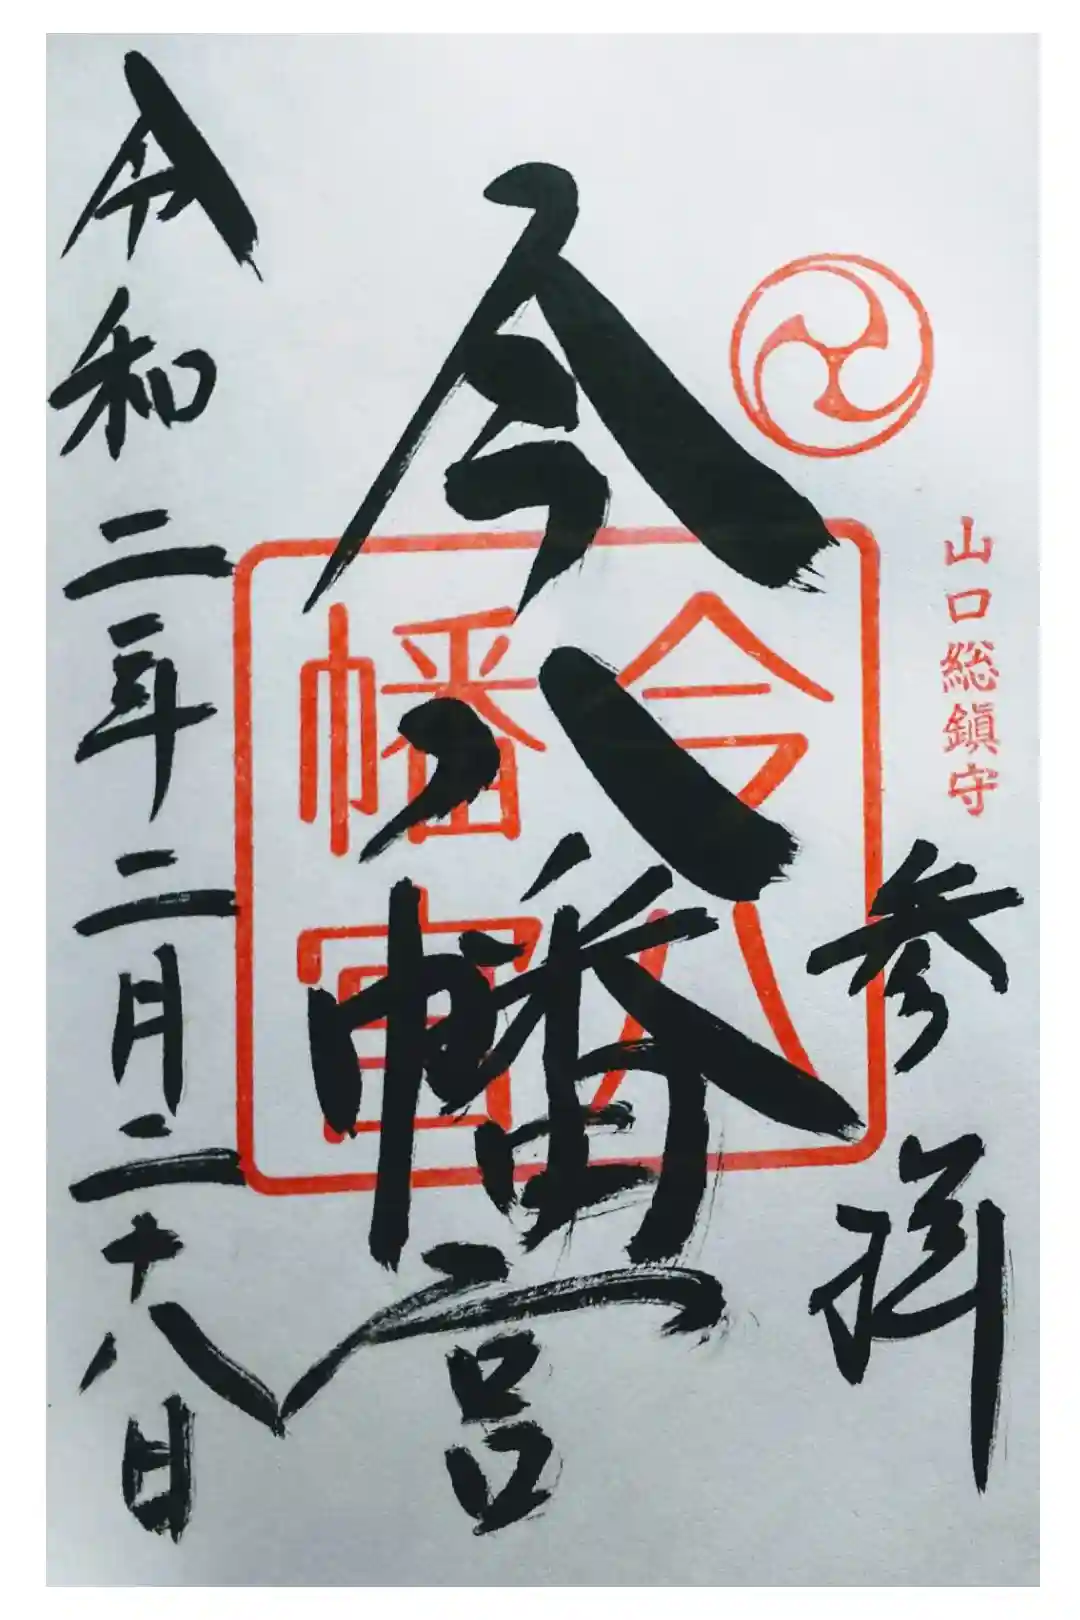 山口総鎮守
参拝
今八幡宮
今八
幡宮
令和二年二月二十八日